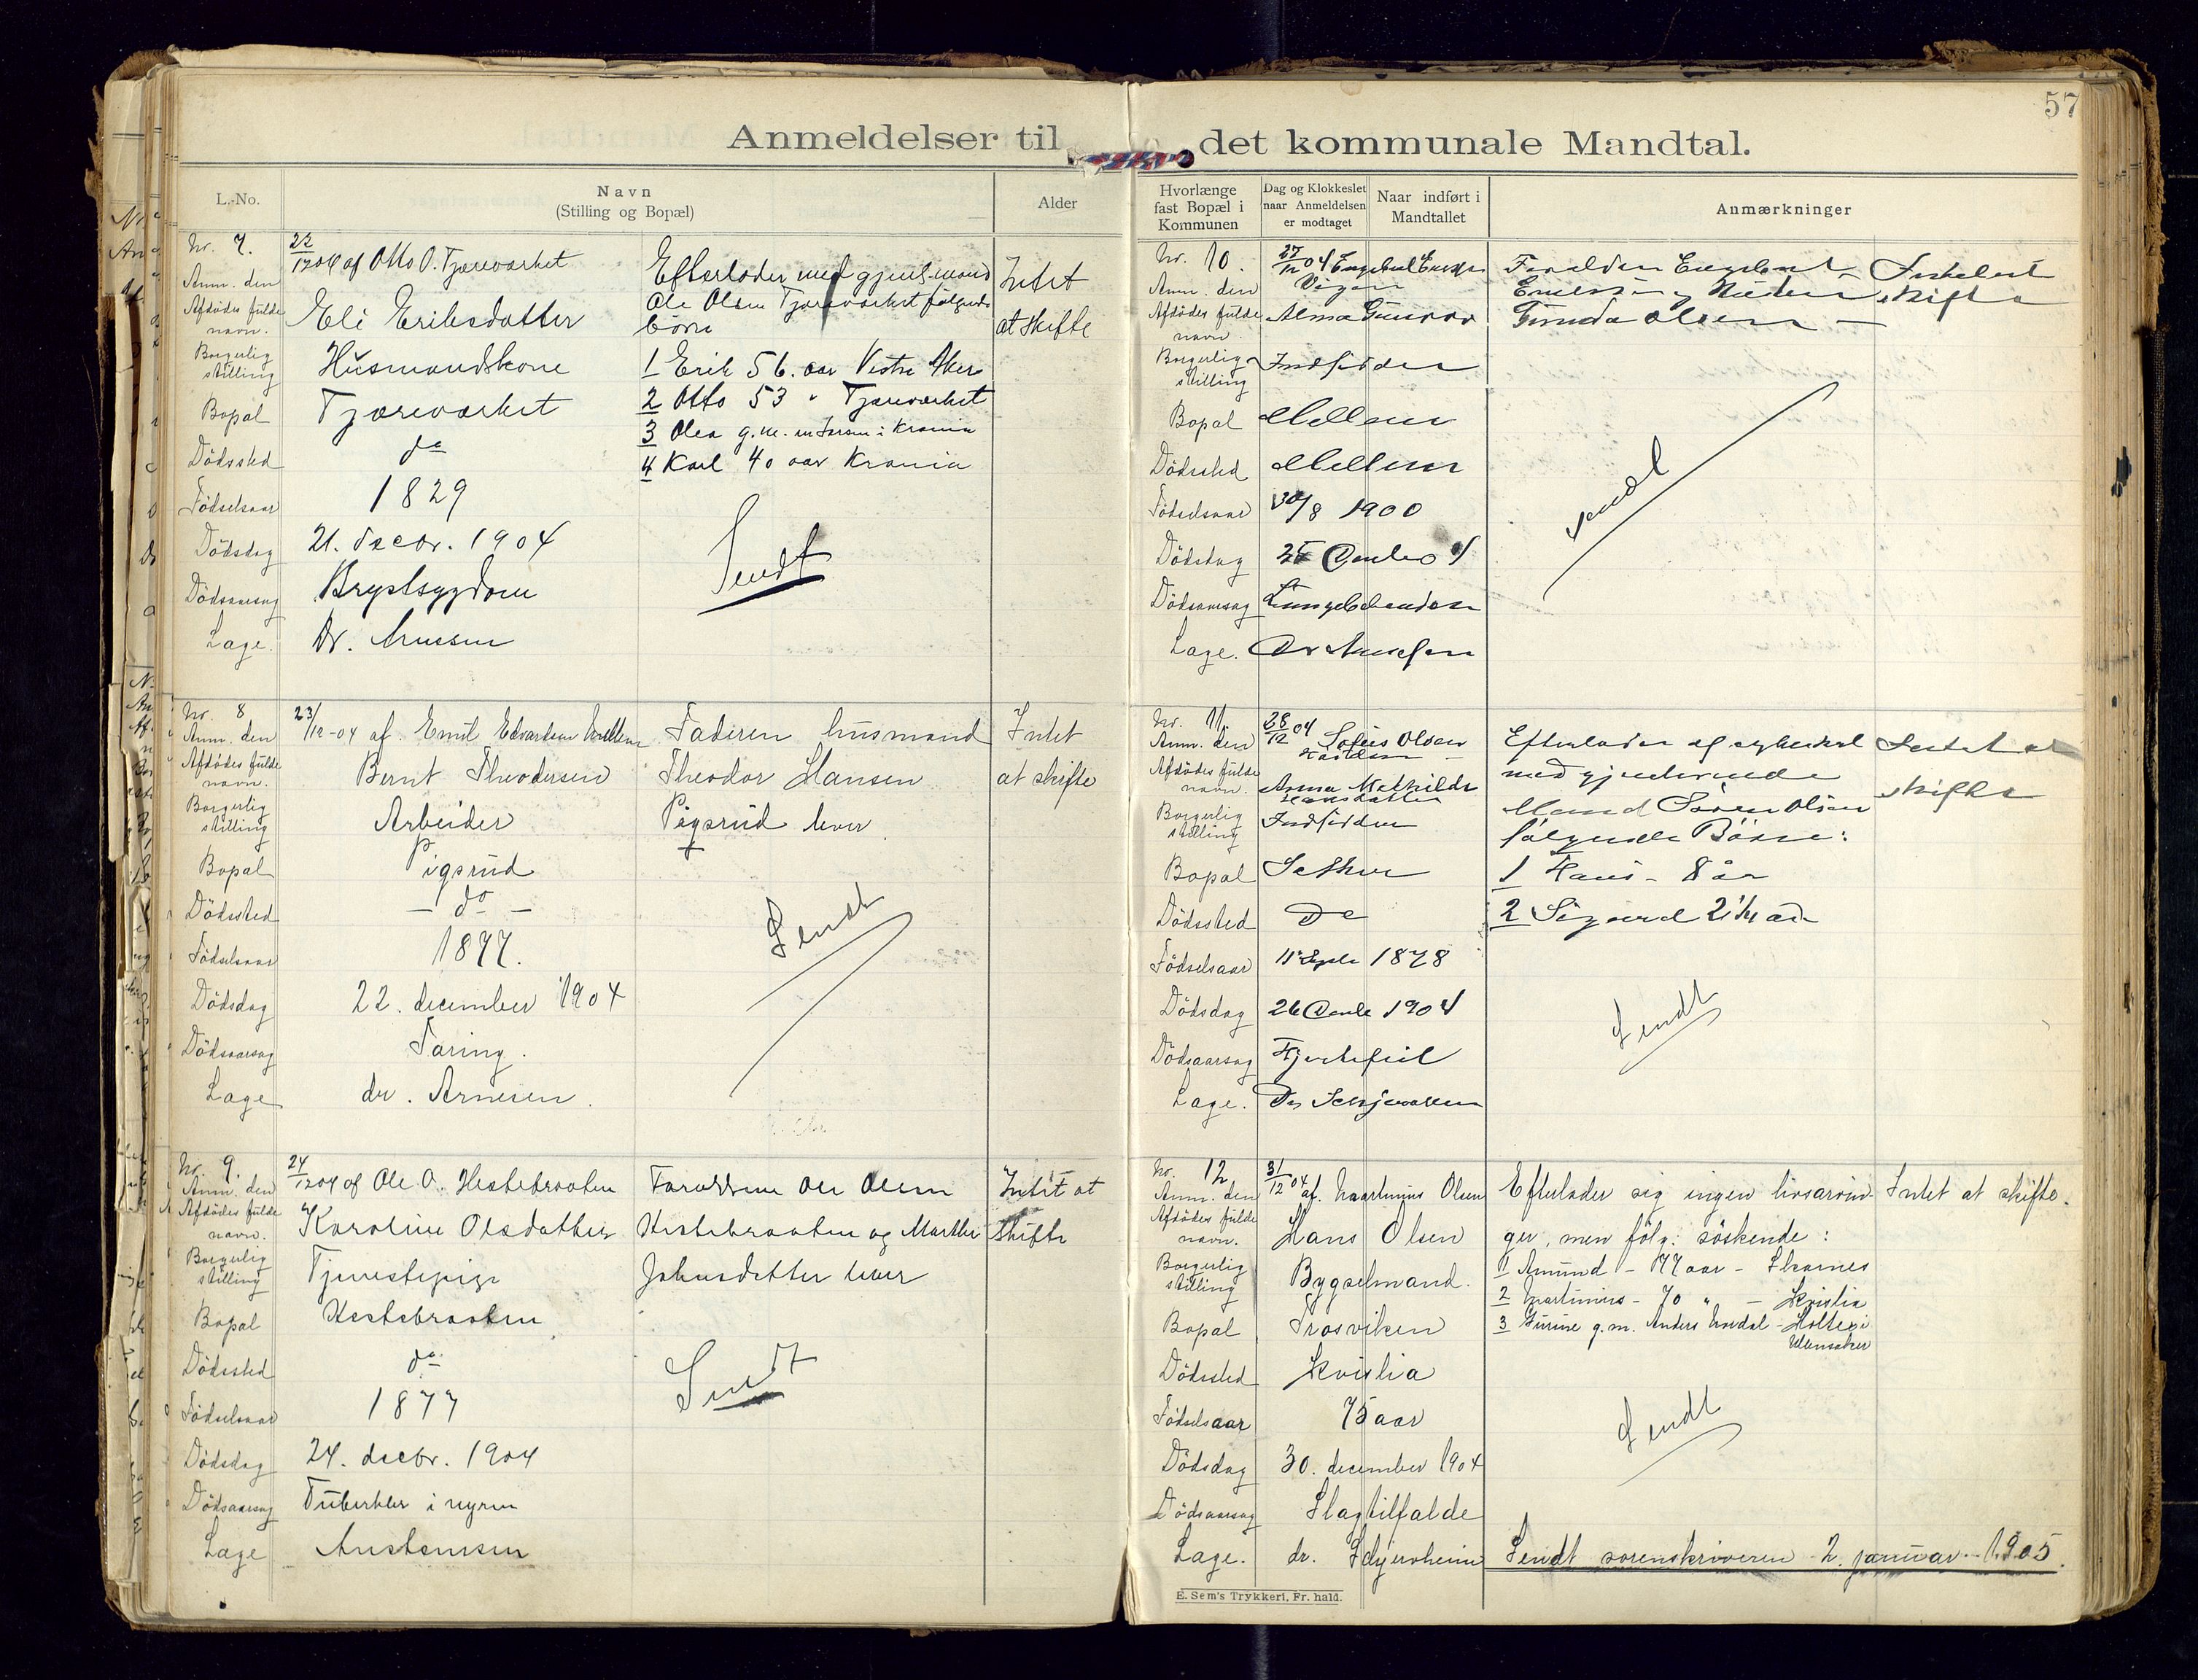 57
Anmeldelser til det kommunale Mandtal.
L.-No.
Navn
(Stilling og Bopæl)
Alder
Nr. 7.
Anm. den
Afdødes fulde
navn.
Borgerlig
stilling
Bopæl
Dödssted
Födselsaar
Dödsdag
Dödsaarsag
Læge.
22/12 04 af Otto O. Tjæreværket
Eli Eriksdatter
Husmandskone
Tjæreværket
do
1829
21. decbr. 1904
Brystsygdom
Dr. Arnesen
Efterlader med gjenl. mand
Ole Olsen Tjæreværket følgende
börn
1 Erik 56. aar Vestre Aker
2 Otto 53 " Tjæreværket
3 Olea g. m. i Krania
4 Karl 40 aar Krania
Sendt
Intet
at skifte
Nr. 8
Anm. den
Afdödes fulde
navn.
Borgerlig
stilling
Bopæl
Dödssted
Födselsaar
Dödsdag
Dödsaarsag
Læge
23/12-04 af. Emil Edvardsen
Bernt Theodorsen
Arbeider
Pigsrud
— do —
1877.
22. december 1904
Tæring.
dr. Arnesen.
Faderen husmand
Theodor Hansen
Pigsrud lever
Sendt
Intet
at skifte
Nr. 9.
Anm. den
Afdödes fulde
navn.
Borgerlig
stilling
Bopæl
Dödssted
Födselsaar
Dödsdag
Dödsaarsag
Læge
24/12 04 af Ole O. Hestebraaten
Karoline Olsdatter
Tjenestepige
Hestebraaten
do
1877
24. decbr. 1904
Tuberkler i nyren
Austensen
Forældrene Ole Olsen
Hestebraaten og Marthe
Johnsdatter lever
Sendt
Intet at
skifte
Hvorlænge
fast Bopæl i
Kommunen
Dag og Klokkeslet
naar Anmeldelsen
er modtaget
Naar indført i
Mandtallet
Anmærkninger
Nr. 10.
Anm. den
Afdödes fulde
navn.
Borgerlig
stilling
Bopæl
Dödssted
Födselsaar
Dödsdag
Dödsaarsag
Læge.
27/12 04 Engebret
Alma Gunvor
Indsidder
Mellem
Mellem
30/8 1900
Dr Arnesen
Forældre Engebret
Gunda Olsen —
skifte
sendt
Nr. 11.
Anm. den
Afdödes fulde
navn.
Borgerlig
stilling
Bopæl
Dödssted
Födselsaar
Dödsdag
Dödsaarsag
Læge.
28/12 04 Olsen
Anna Mathilde
Hansdatter
Indsidder
Do
11 Septr 1878
26 Decmbr 1904
Hjertefeil
Efterlader af ægteskab
med gjenlevende
Mand Sören Olsen
følgende Börn:
1 Hans - 8 år
2 Sigurd 2 1/4 år
Sendt
Intet at
skifte
Nr. 12
Anm. den
Afdödes fulde
navn.
Borgerlig
stilling
Bopæl
Dödssted
Födselsaar
Dödsdag
Dödsaarsag
Læge.
31/12 04 af. Martinius Olsen
Hans Olsen
Bygselmand.
Trosviken
Kvislia
75 aar
30. december 1904
Slagtilfælde
dr. Schjervheim
Efterlader sig ingen livsarvin-
ger, men følg. söskende:
1 Amund - 77 aar - Skarnes
2 Martinius - 70 " - Kvislia
3 Gurine g. m. Anders - Holter i
Ullensaker
Sendt
Sendt sorenskriveren 2. januar 1905.
Intet at skifte.
E. Sem's Trykkeri, Fr. hald.